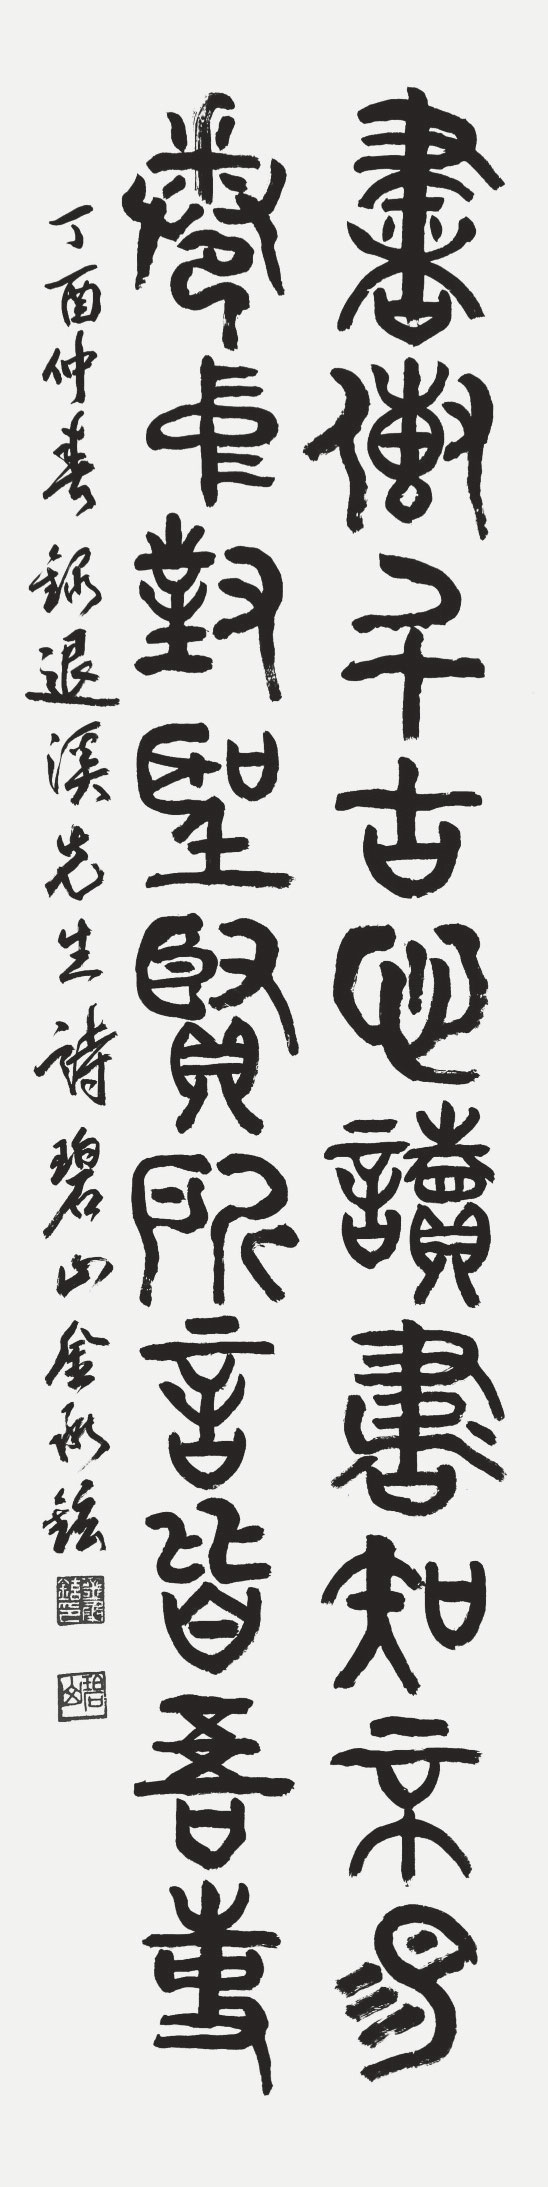 書傳千古心讀書知不易
卷中對聖賢所言皆吾事
丁酉仲春錄退溪先生詩碧山金鉉
碧山